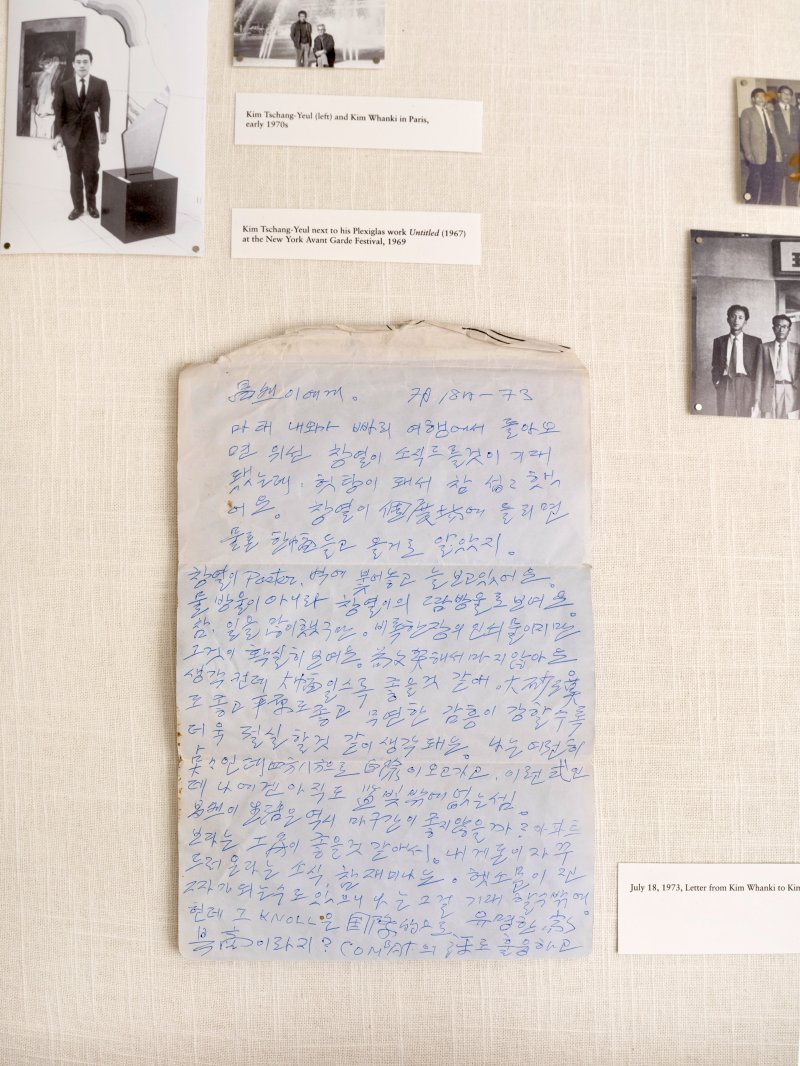 Kim Tschang-Yeul (left) and Kim Whanki in Paris,
early 1970s
Kim Tschang-Yeul next to his Plexiglas work Untitled (1967)
at the New York Avant Garde Festival, 1969
이에게。 7月 18日-73
마대 내외가 빠리 여행에서 돌아오
면 위선 창열이 소식 드를것이 기대
됐는데. 헛탕이 돼서 참 섭섭 했
어요。 창열이 個展 에 들리면
물론 들고 올거로 알았지。
창열이 Poster, 벽에 붙여놓고 늘 보고있어요。
물방울이 아니라 창열이의 땀방울로 보여요。
참, 일을 많이했구만. 비록 한장의 인쇄물이지만
그것이 확실히 보여요。 해서 마지않아요
생각컨데 일스록 좋을것 같애.
도 좋고 도 좋고 우연한 감흥이 강할수록
더욱 절실 할것 같이 생각돼요。 나는 여전히
인데 으로 이 오고가고, 이런
데 나에겐 아직도 빛밖에 없는셈。
은 역시 마구간이 좋지않을까? 아파트
보다는 이 좋을것 같아서。 내게 자꾸
온다는 소식, 참 재미나요。 헛소문이 진
짜가 되는수도 있으니 나는 그걸 기대 할수밖에。
헌데 그 KNOLL은 国際的으로 유명한
이라지? COMBAT의 도 훌륭하고
July 18, 1973, Letter from Kim Whanki to Kim